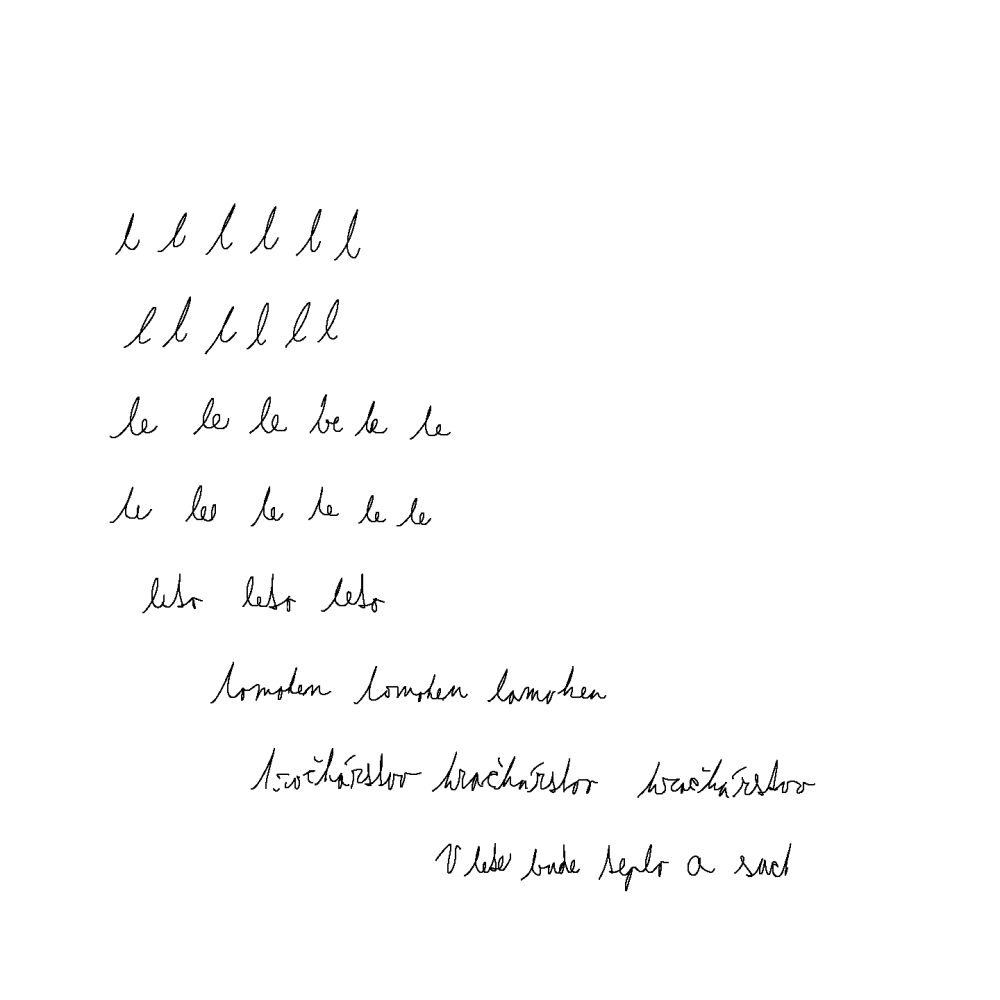 l l l l l l
l l l l l l
le le le be le le
le lee le le le le
leto leto leto
lomohen lomohen lomohen
hračkárstvo hračkárstvo hračkárstvo
V lete bude teplo a such